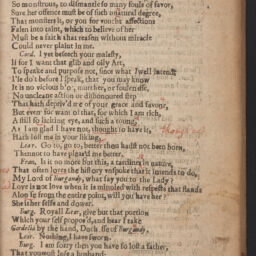 So monstrous, to dismantle so many foulds of favor,
Sure her offence must be of such unnaturall degree,
That monsters it, or you for voucht affections
Falne into taint, which to believe of her
Must be a faith that reason without miracle
Could never plaint in me.
Cord. I yet beseech your majesty,
If for I want that glib and oily Art,
To speake and purpose not, since what I well intend
I'le do't before I speak, that you may know
It is no vicious blot, murther, or foulenesse,
No uncleane action or dishonoured step
That hath depriv'd me of your grace and favour,
But even for want of that, for which I am rich,
A still soliciting eye, and such a tongue,
As I am glad I have not, though not to have it,
Hath lost me in your liking.
Lear. Go to, go to, better thou hadst not been born,
Then not to have pleas'd me better.
Fran. Is it no more but this, a tardines in nature,
That often loves the history unspoke that it intends to do,
My Lord of Burgundy, what say you to the Lady?
Love is not love when it is mingled with respects that stands
Aloofe from the entire point, will you have her?
She is her selfe and dower.
Burg. Royall Lear, give but that portion
Which your selfe propos'd, and hear I take
Cordelia by the hand, Dutchesse of Burgundy.
Lear. Nothing, I have sworn.
Burg. I am sorry then you have so lost a father,
That you must lose a husband: